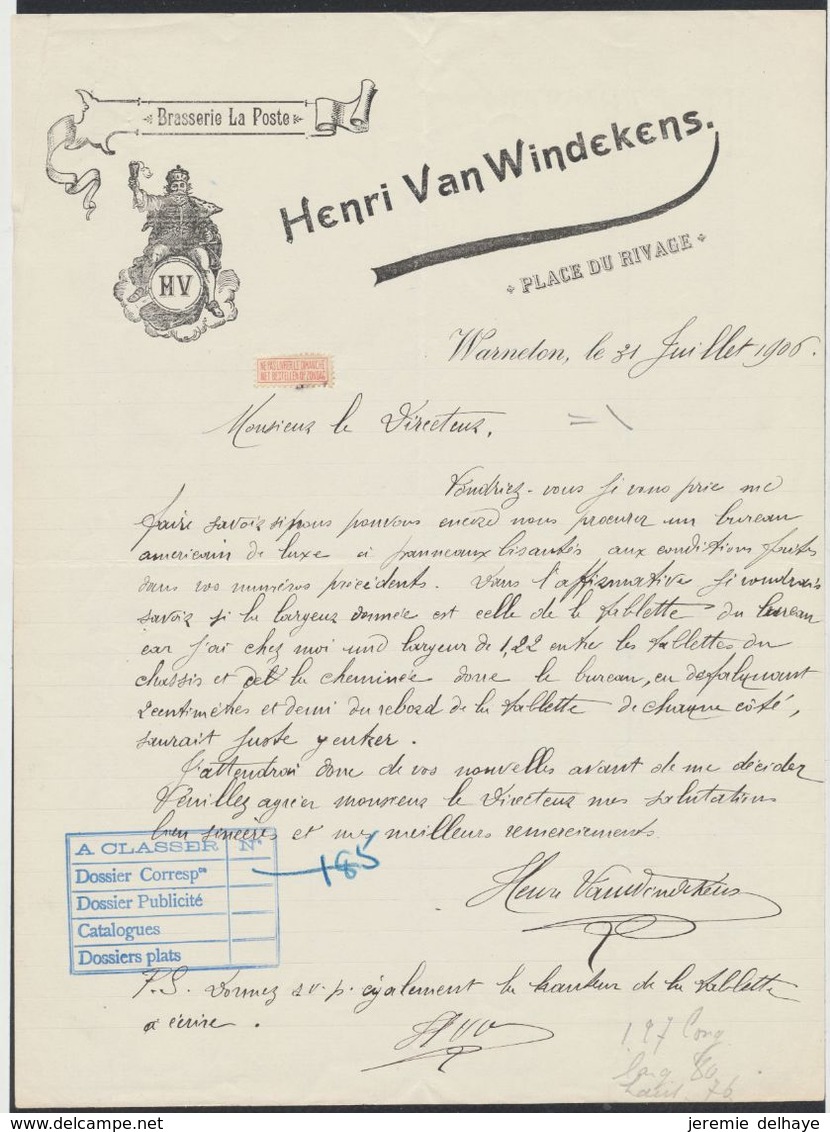 Brasserie La Poste
Henri Van Windekens.
PLACE DU RIVAGE
HV
Warneton, le 31 Juillet 1906.
NE PAS LIVRER LE DIMANCHE
NIET BESTELLEN OP ZONDAG
Monsieur le Directeur,
Voudriez-vous je vous prie me
faire savoir si vous pouvons encore nous procurer un bureau
americain de luxe à panneaux bisautés aux conditions faites
dans vos numéros précédents. Dans l'affirmative je voudrais
savoir si la largeur donnée est celle de la tablette du bureau
car j'ai chez moi une largeur de 1,22 entre les tablettes du
chassis et de la cheminée donc le bureau, en defalquant
2 centimètres et demi du rebord de la tablette de chaque côté,
saurait juste y entrer.
J'attendrai donc de vos nouvelles avant de me décider
Veuillez agréer monsieur le Directeur mes salutations
bien sincères et mes meilleurs remerciements.
A CLASSER Nº
Dossier Corresp^ce 185
Dossier Publicité
Catalogues
Dossiers plats
Henri Van Windekens
P.S. Donnez s.v.p. également la hauteur de la tablette
à écrire.
HVW
127 long
larg 80
haut. 76
delcampe.net
jeremie delhaye